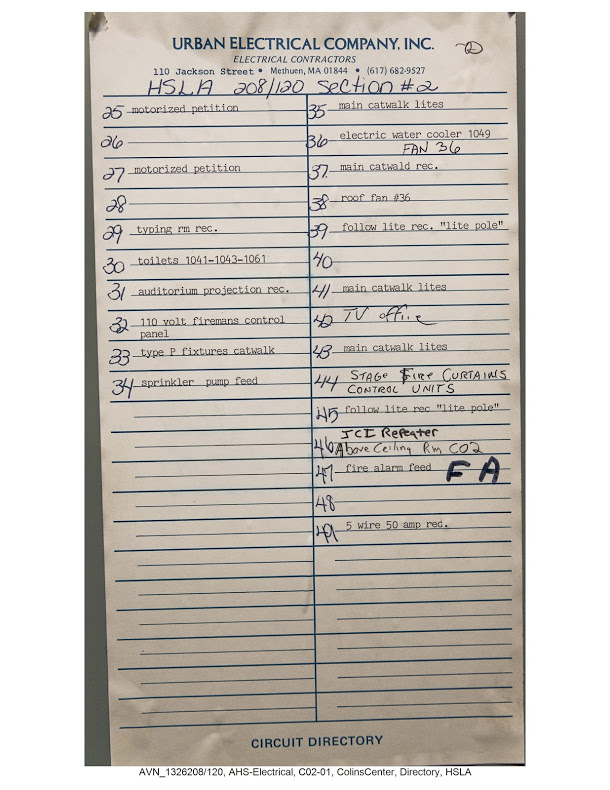 URBAN ELECTRICAL COMPANY, INC.
2
ELECTRICAL CONTRACTORS
110 Jackson Street • Methuen, MA 01844 • (617) 682-9527
HSLA 208/120 Section #2
25 motorized petition
26
27 motorized petition
28
29 typing rm rec.
30 toilets 1041-1043-1061
31 auditorium projection rec.
32 110 volt firemans control
panel
33 type P fixtures catwalk
34 sprinkler pump feed
35 main catwalk lites
36 electric water cooler 1049
FAN 36
37 main catwald rec.
38 roof fan #36
39 follow lite rec. "lite pole"
40
41 main catwalk lites
42 TV office
43 main catwalk lites
44 STAGE FIRE CURTAINS
CONTROL UNITS
45 follow lite rec "lite pole"
JCI Repeater
46 Above Ceiling Rm CO2
47 fire alarm feed FA
48
49 5 wire 50 amp red.
CIRCUIT DIRECTORY
AVN_1326208/120, AHS-Electrical, C02-01, ColinsCenter, Directory, HSLA